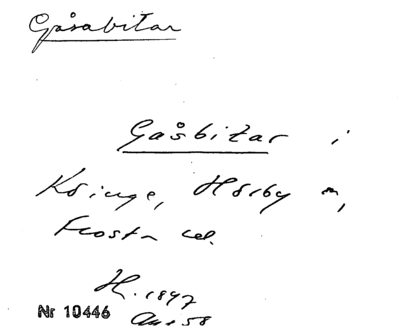 Gåsabitar
Gåsbitar i
Köinge, Hörby m,
Frosta
H. 1897
Nr 10446
58